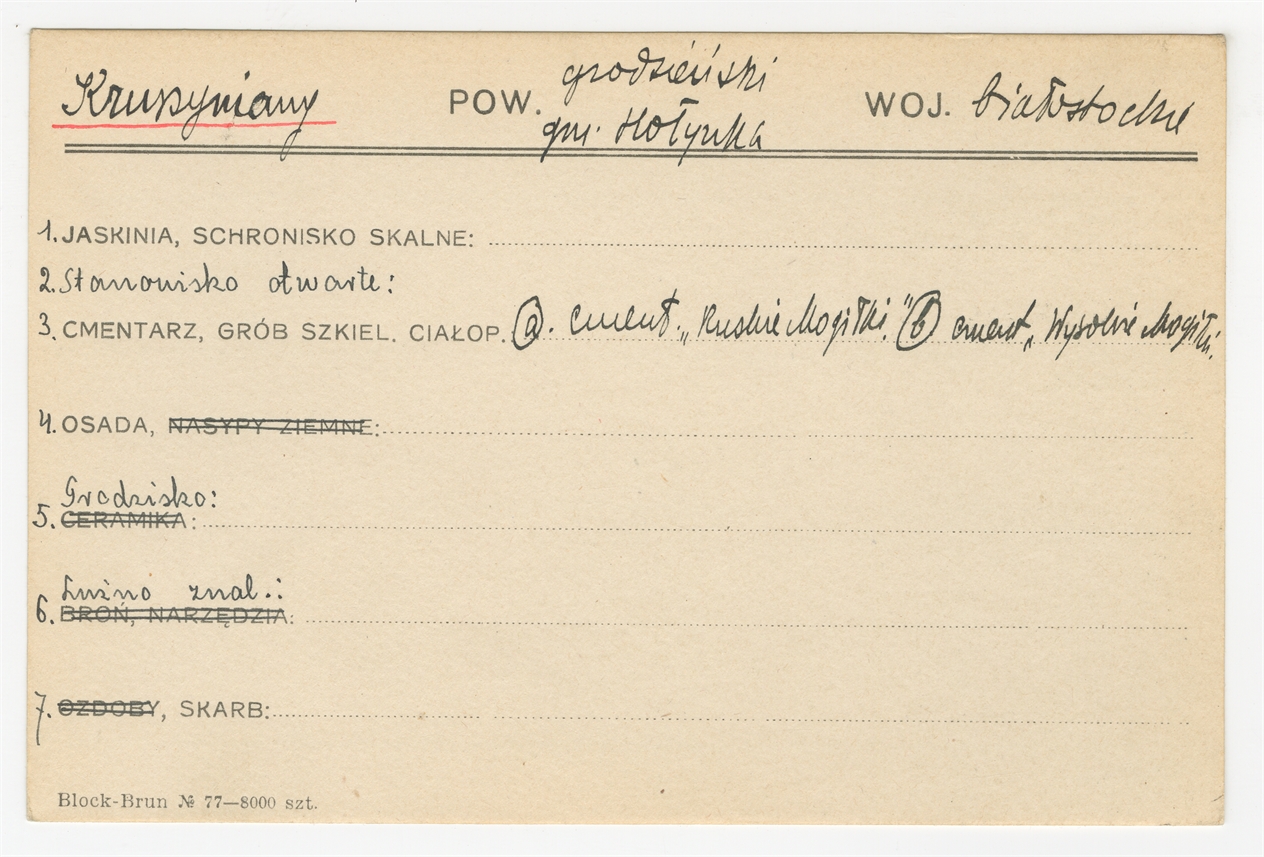 Kruszyniany POW. grodzieński WOJ. białostockie
gm. Hołynka
1. JASKINIA, SCHRONISKO SKALNE:
2. Stanowisko otwarte:
3. CMENTARZ, GRÓB SZKIEL. CIAŁOP. (a). cment. „Ruskie Mogiłki." (b) cment „Wysokie Mogiłki.
4. OSADA, NASYPY ZIEMNE:
Grodzisko:
5. CERAMIKA:
Luźno znal.:
6. BROŃ, NARZĘDZIA:
7. OZDOBY, SKARB:
Block-Brun № 77—8000 szt.